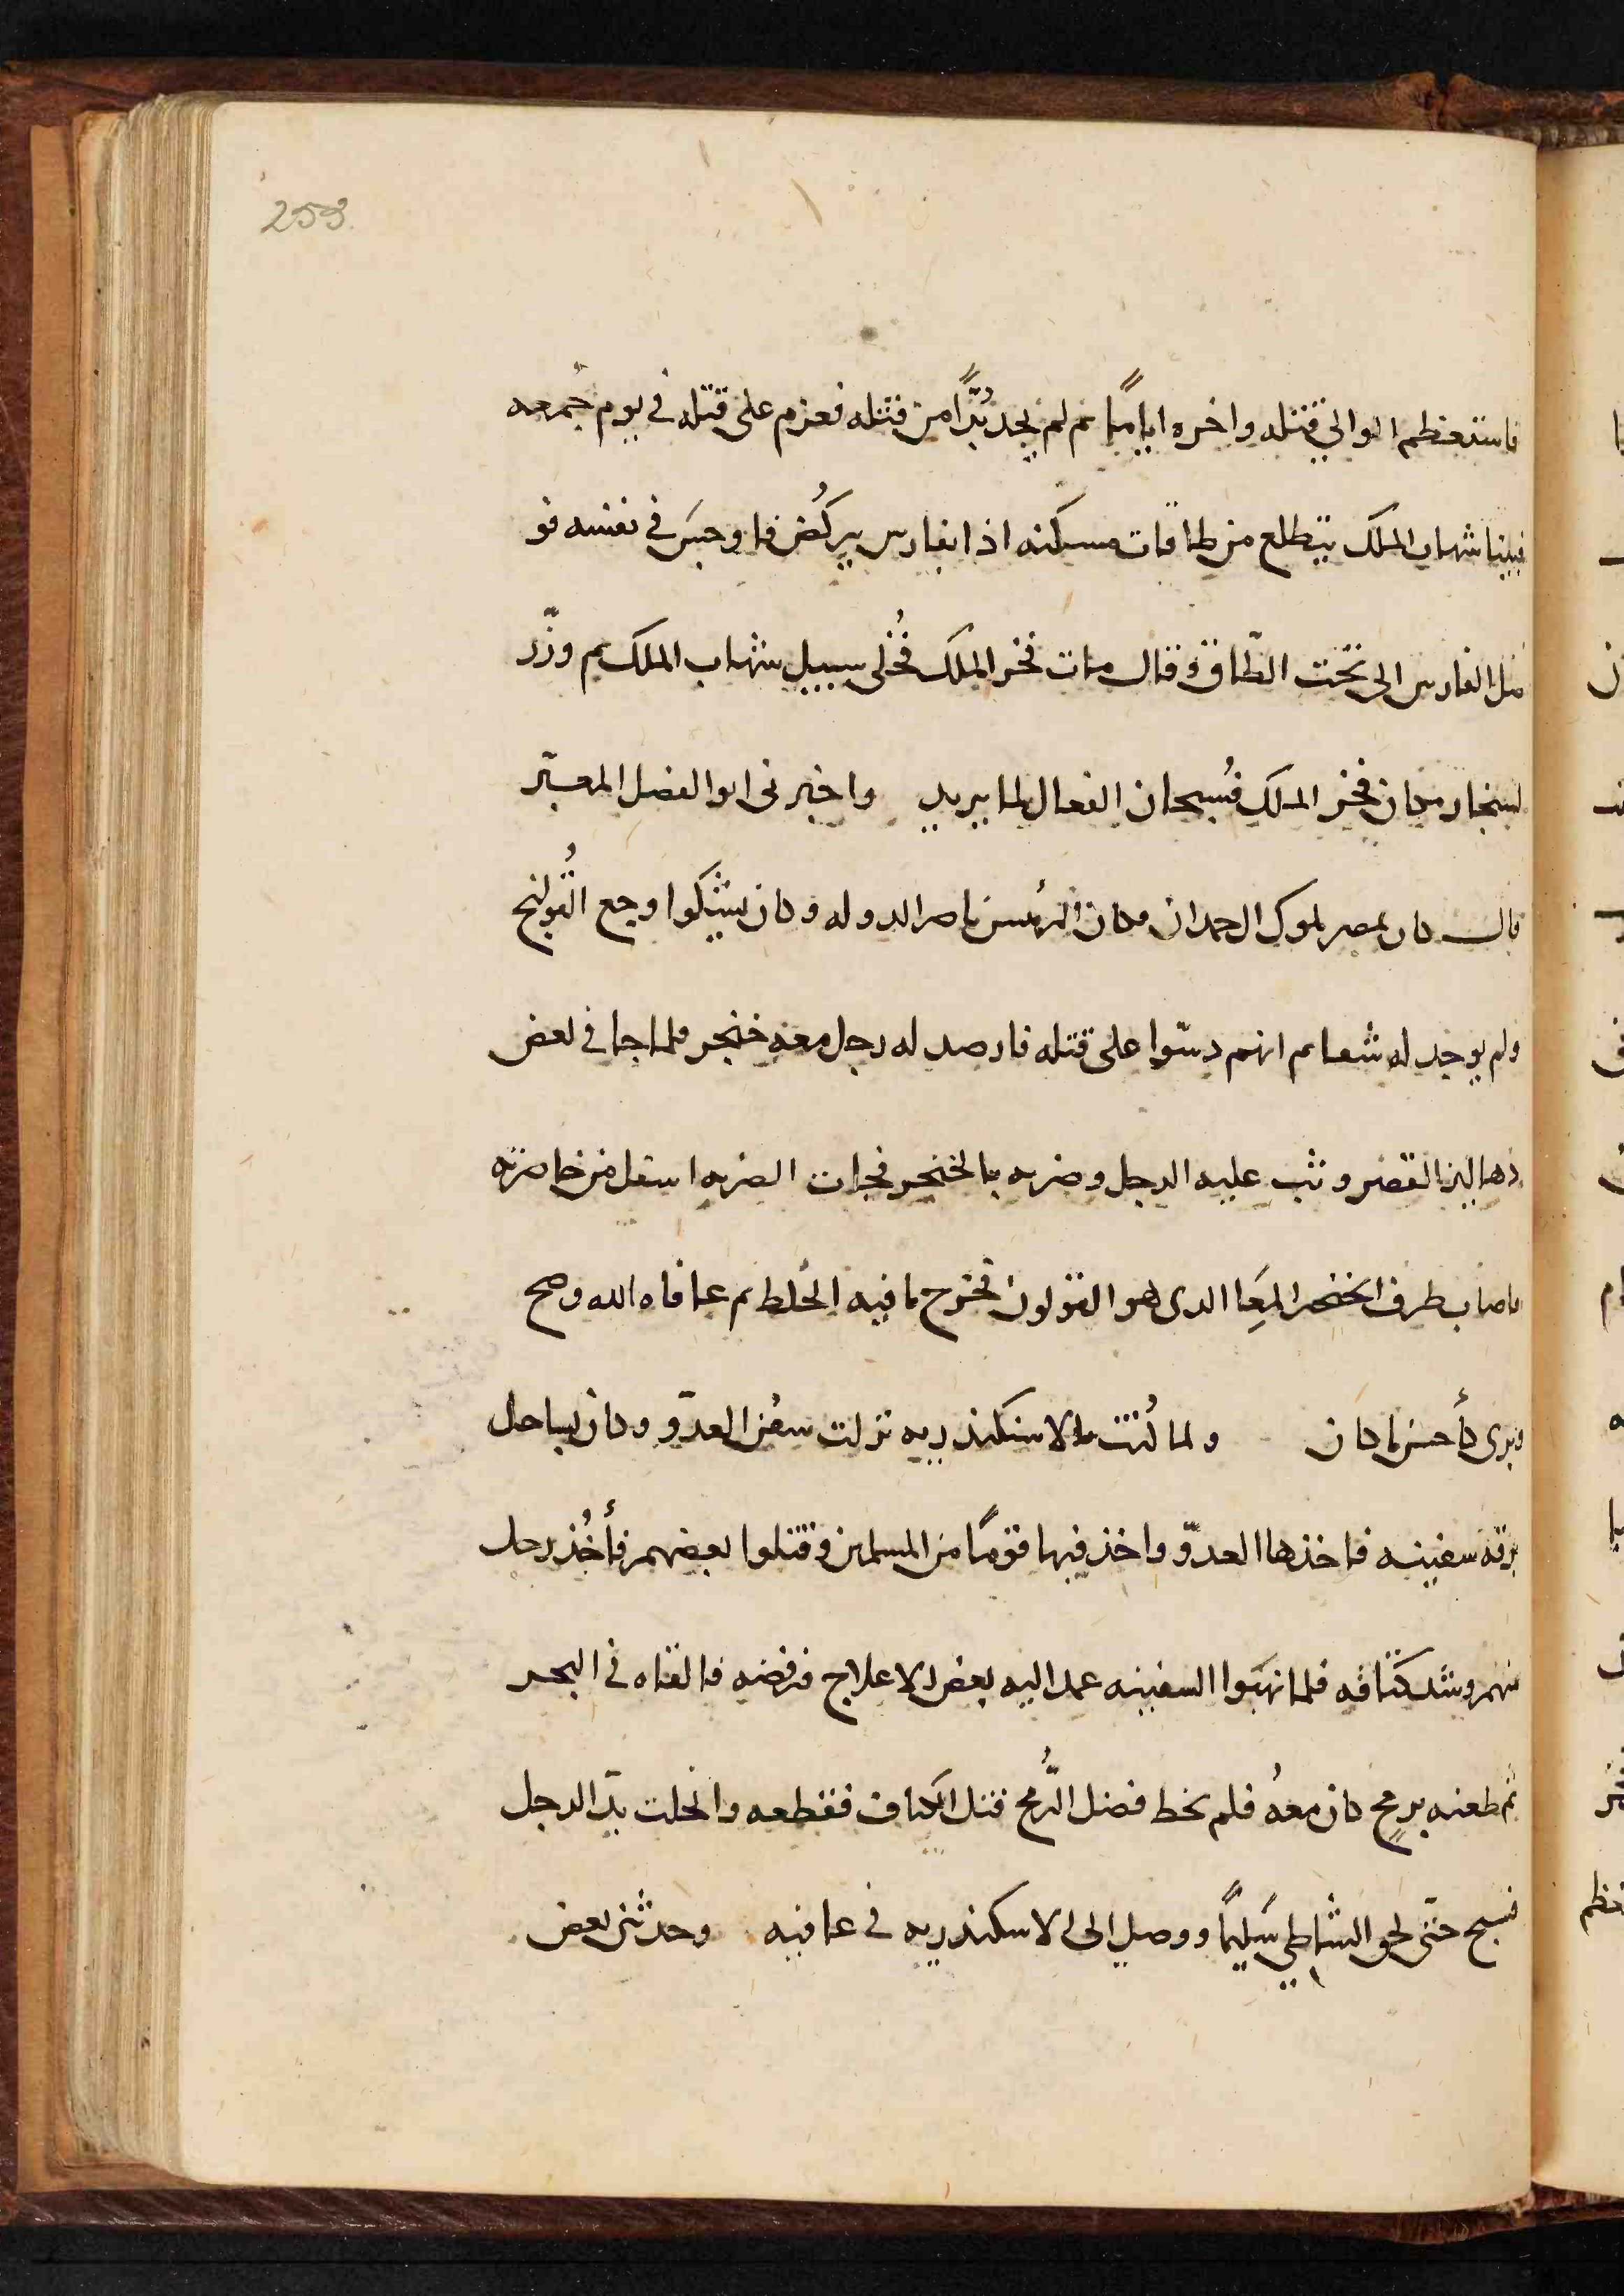 253
فاستعظم الوالي قتله واخره ايامًا ثم لم يجد بُدًّا من قتله فعزم على قتله في يوم جُمعه
فبينا شهاب الملك يتطلع من طاقات مسكنه اذا بفارس يركُض فاوجسَ في نفسه فو
صل الفارس الى تحت الطّاق وقال مات فخر الملك فخُلى سبيل شهاب الملك ثم وزّر
لسنجار مكان فخر الملك فسُبحان الفعال لما يريد واخبرنى ابو الفضل المعبّر
قال كان بمصر ملوك ال حمدان وكان الرئيس ناصر الدوله وكان يشكوا وجع القُولنج
ولم يوجد له شفا ثم انهم دسّوا على قتله فارصد له رجل معه خنجر فلما جا في بعض
دهاليز القصر وثب عليه الرجل وضربه بالخنجر فجات الضربه اسفل من خاصرته
فاصاب طرف الخنجر المِعَا الذى هو القولون فخرج ما فيه الخُلط ثم عافاه الله وصح
وبرى كأحسن ما كان ولما كُنت بالاسكندريه نزلت سفُن العدّو وكان بساحل
برقة سفينه فاخذها العدّو واخذ فيها قومًا من المسلمين وقتلوا بعضهم فأخُذ رجل
منهم وشد كتافه فلما نهَبوا السفينه عمد اليه بعض الاعلاج فرفضه فالقاه في البحر
ثم طعنه برمح كان معهُ فلم يخط فضل الرُّمح قتل الكتاف فقطعه وانحلت يدّ الرجل
فسبح حتّى لحق الشاطي سَليمًا ووصل الى الاسكندريه في عافيه وحدثنى بعض